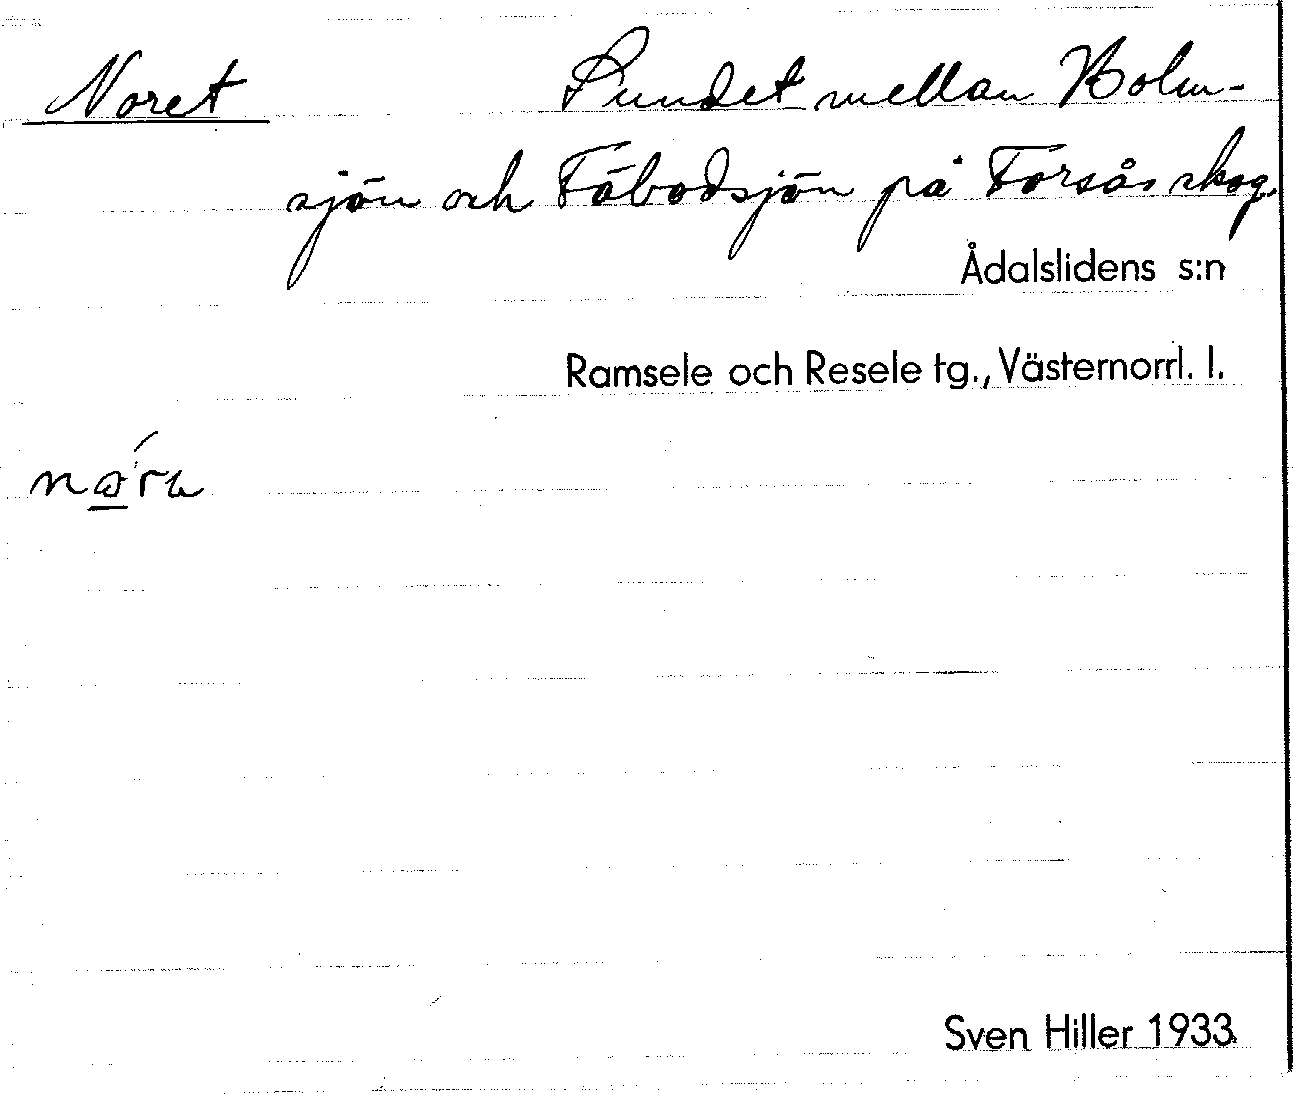 Noret Sundet mellan Holm-
sjön och Fäbodsjön på Forsås skog.
Ådalslidens s:n
Ramsele och Resele tg., Västernorrl. l.
Sven Hiller 1933